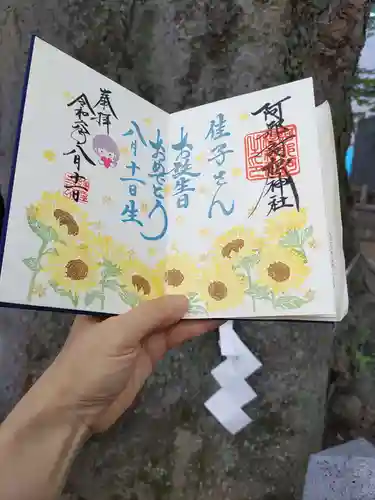 阿邪訶根神社
桂子さん
お誕生日
おめでとう
八月十一日生
奉拝
令和六年八月十一日